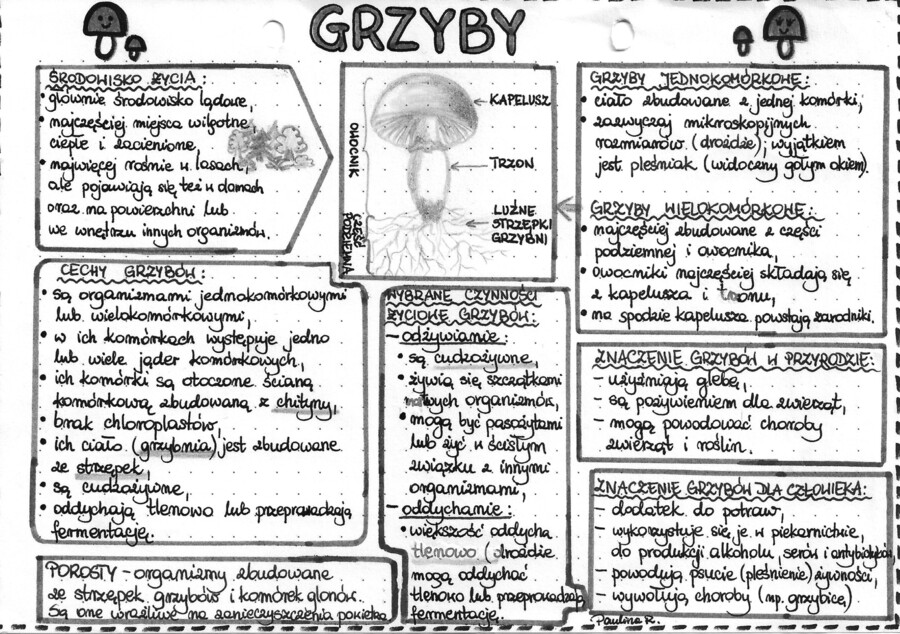 GRZYBY
ŚRODOWISKO ŻYCIA:
• głównie środowisko lądowe,
• najczęściej miejsca wilgotne,
ciepłe i zacienione,
• najwięcej rośnie w lasach,
ale pojawiają się też w domach
oraz na powierzchni lub
we wnętrzu innych organizmów.
OWOCNIK
CZĘŚĆ PODZIEMNA
KAPELUSZ
TRZON
LUŹNE
STRZĘPKI
GRZYBNI
GRZYBY JEDNOKOMÓRKOWE:
• ciało zbudowane z jednej komórki,
• zazwyczaj mikroskopijnych
rozmiarów (drożdże); wyjątkiem
jest pleśniak (widoczny gołym okiem).
GRZYBY WIELOKOMÓRKOWE:
• najczęściej zbudowane z części
podziemnej i owocnika,
• owocniki najczęściej składają się
z kapelusza i trzonu,
• na spodzie kapelusza powstają zarodniki.
CECHY GRZYBÓW:
• są organizmami jednokomórkowymi
lub wielokomórkowymi,
• w ich komórkach występuje jedno
lub wiele jąder komórkowych,
• ich komórki są otoczone ścianą
komórkową zbudowaną z chityny,
• brak chloroplastów,
• ich ciało (grzybnia) jest zbudowane
ze strzępek,
• są cudzożywne,
• oddychają tlenowo lub przeprowadzają
fermentację.
WYBRANE CZYNNOŚCI
ŻYCIOWE GRZYBÓW:
- odżywianie:
• są cudzożywne,
• żywią się szczątkami
martwych organizmów,
• mogą być pasożytami
lub żyć w ścisłym
związku z innymi
organizmami,
- oddychanie:
• większość oddycha
tlenowo (drożdże
mogą oddychać
tlenowo lub przeprowadzają
fermentację.
ZNACZENIE GRZYBÓW W PRZYRODZIE:
- użyźniają glebę,
- są pożywieniem dla zwierząt,
- mogą powodować choroby
zwierząt i roślin.
ZNACZENIE GRZYBÓW DLA CZŁOWIEKA:
- dodatek do potraw,
- wykorzystuje się je w piekarnictwie,
do produkcji alkoholu, serów i antybiotyków,
- powodują psucie (pleśnienie) żywności,
- wywołują choroby (np. grzybicę)
Paulina R.
POROSTY - organizmy zbudowane
ze strzępek grzybów i komórek glonów.
Są one wrażliwe na zanieczyszczenia powietrza